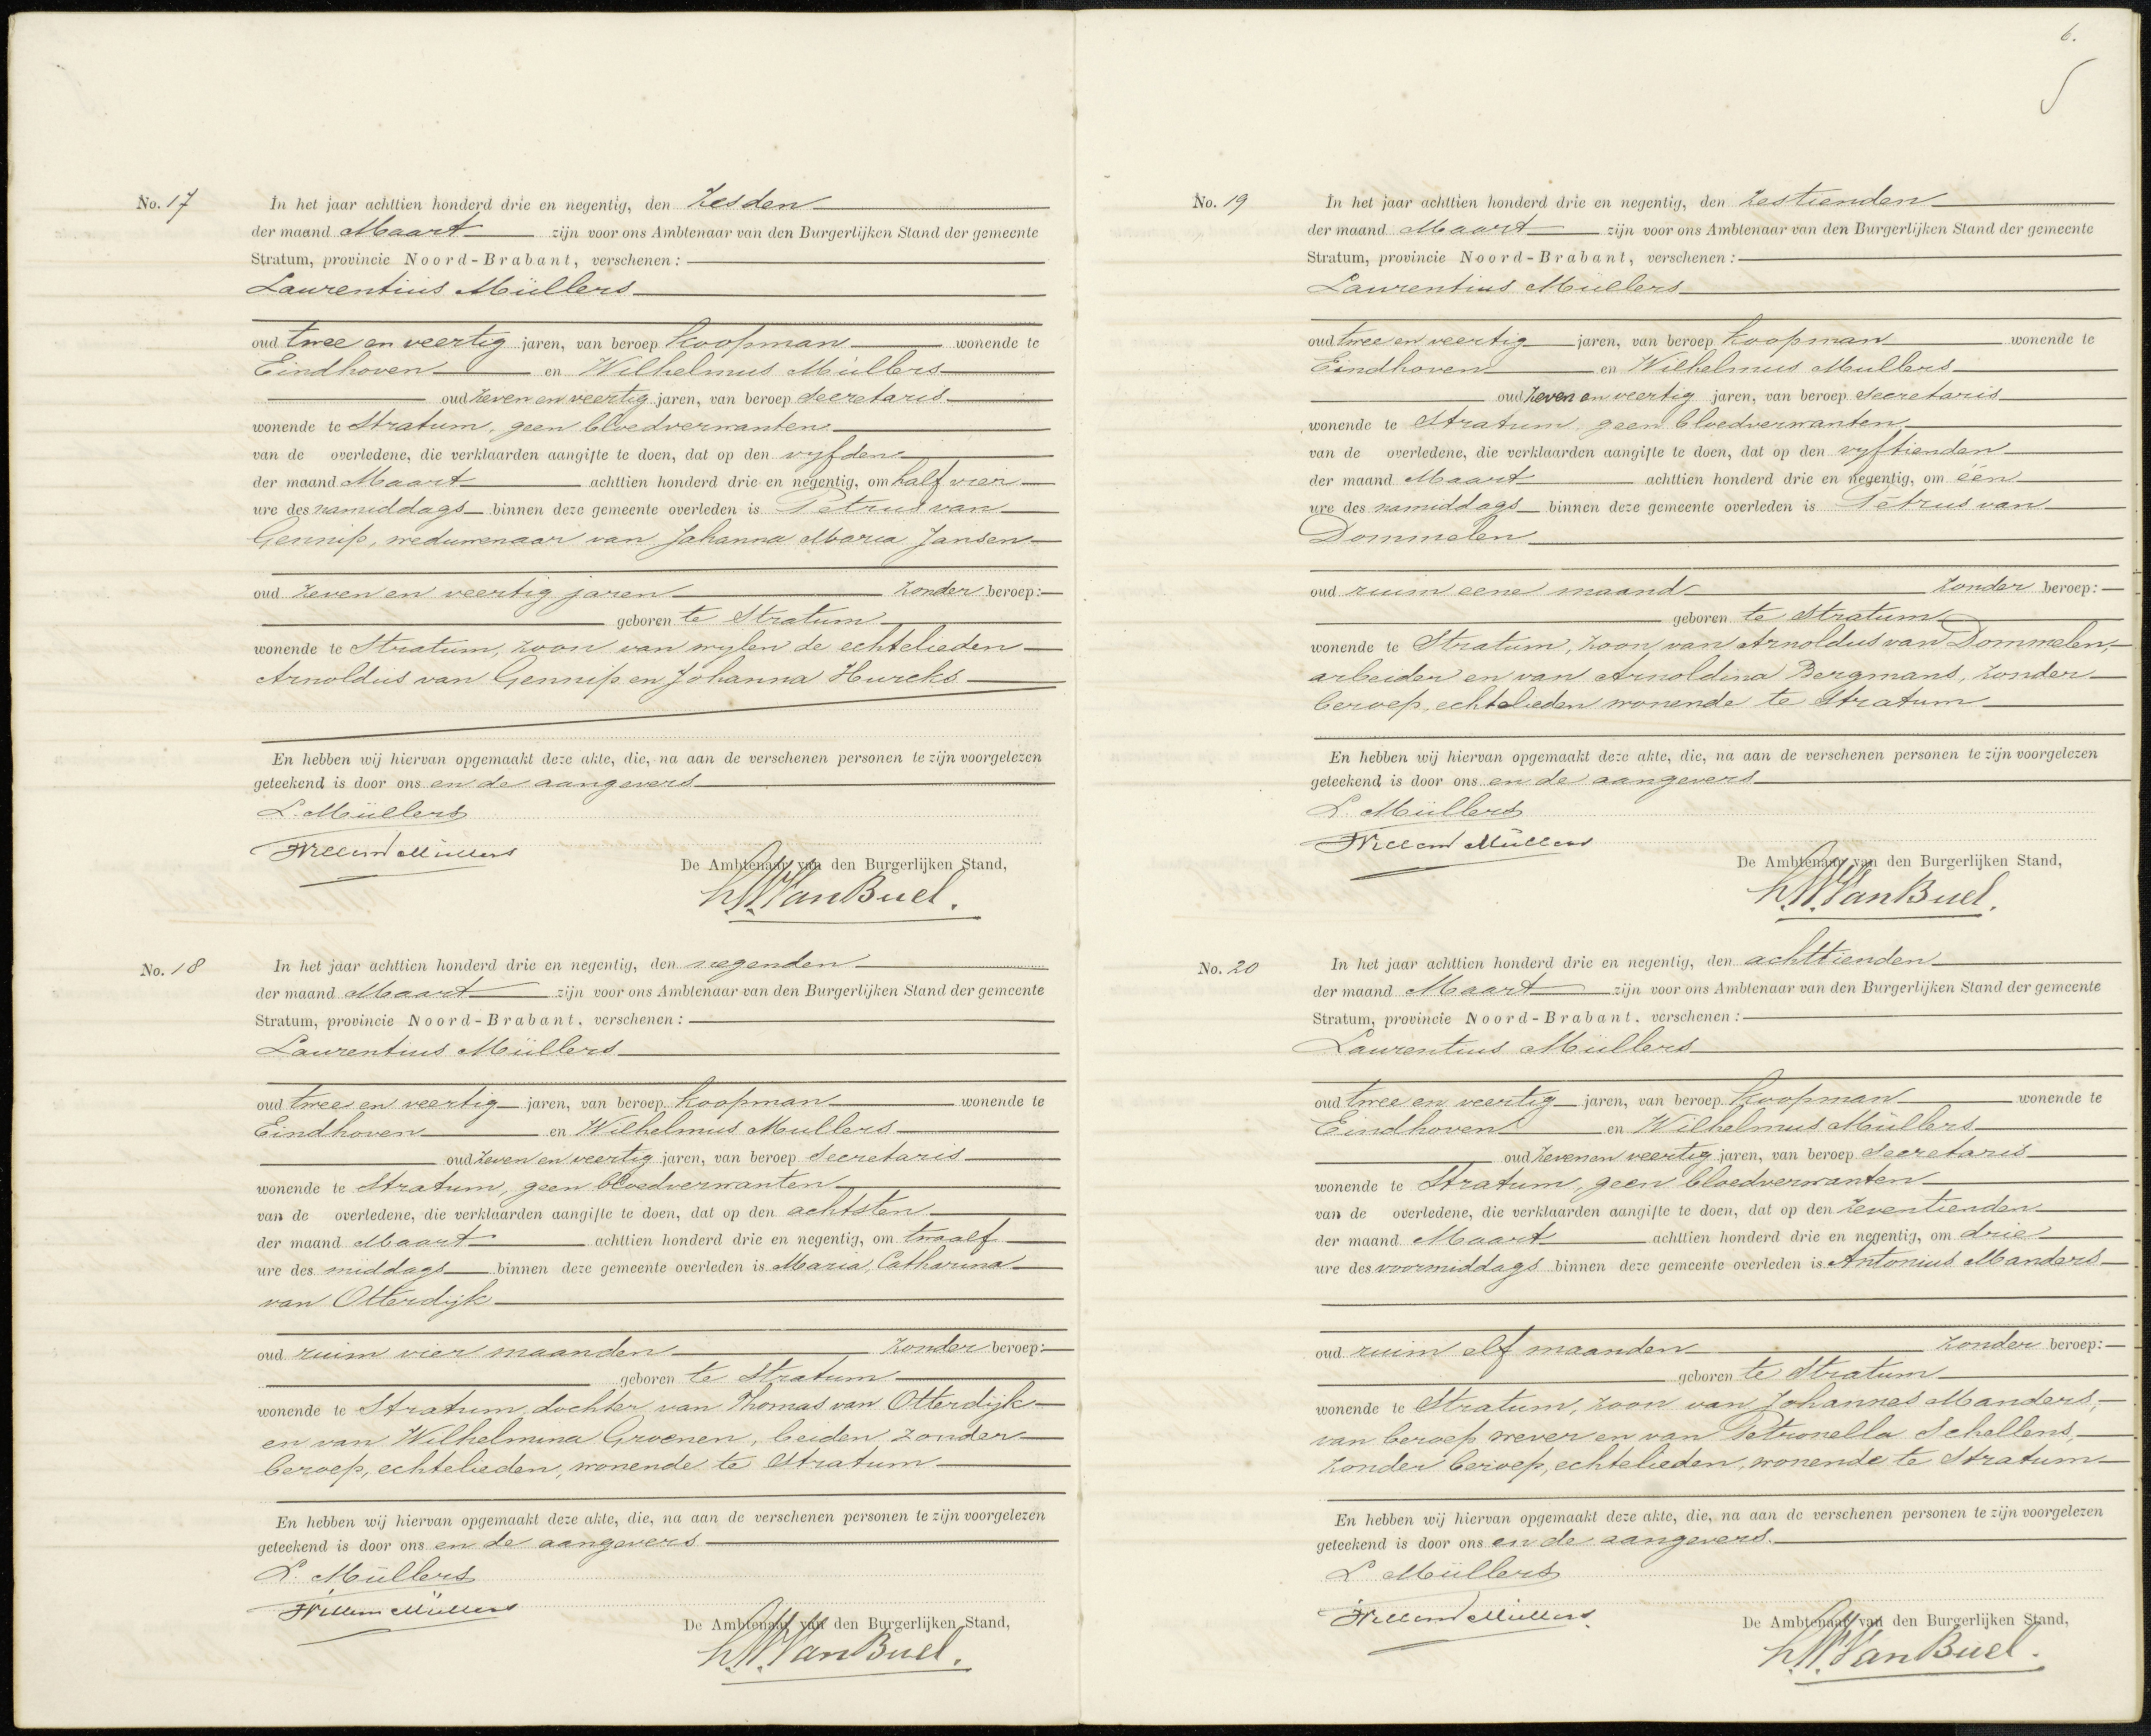 No. 17
In het jaar achttien honderd drie en negentig, den Zesden
der maand Maart zijn voor ons Ambtenaar van den Burgerlijken Stand der gemeente
Stratum, provincie Noord-Brabant, verschenen:
Laurentius Müllers
oud twee en veertig jaren, van beroep koopman wonende te
Eindhoven en Wilhelmus Müllers
oud zeven en veertig jaren, van beroep Secretaris
wonende te Stratum, geen bloedverwanten
van de overledene, die verklaarden aangifte te doen, dat op den vyfden
der maand Maart achttien honderd drie en negentig, om half vier
ure des namiddags binnen deze gemeente overleden is Petrus van
Gennip, weduwenaar van Johanna Maria Jansen
oud zeven en veertig jaren zonder beroep:
geboren te Stratum
wonende te Stratum, zoon van wylen de echtelieden
Arnoldus van Gennip en Johanna Hurcks
En hebben wij hiervan opgemaakt deze akte, die, na aan de verschenen personen te zijn voorgelezen
geteekend is door ons en de aangevers
L. Müllers
Willem Müllers
De Ambtenaar van den Burgerlijken Stand,
VanBuel.
No. 18
In het jaar achttien honderd drie en negentig, den negenden
der maand Maart zijn voor ons Ambtenaar van den Burgerlijken Stand der gemeente
Stratum, provincie Noord-Brabant, verschenen:
Laurentius Müllers
oud twee en veertig jaren, van beroep koopman wonende te
Eindhoven en Wilhelmus Mullers
oud zeven en veertig jaren, van beroep Secretaris
wonende te Stratum, geen bloedverwanten
van de overledene, die verklaarden aangifte te doen, dat op den achtsten
der maand Maart achttien honderd drie en negentig, om twaalf
ure des middags binnen deze gemeente overleden is Maria, Catharina
van Otterdijk
oud ruim vier maanden zonder beroep:
geboren te Stratum
wonende te Stratum, dochter van Thomas van Otterdijk
en van Wilhelmina Groenen, beiden zonder
beroep, echtelieden, wonende te Stratum
En hebben wij hiervan opgemaakt deze akte, die, na aan de verschenen personen te zijn voorgelezen
geteekend is door ons en de aangevers
L. Müllers
Willem Müllers
De Ambtenaar van den Burgerlijken Stand,
VanBuel.
6.
No. 19
In het jaar achttien honderd drie en negentig, den Zestienden
der maand Maart zijn voor ons Ambtenaar van den Burgerlijken Stand der gemeente
Stratum, provincie Noord-Brabant, verschenen:
Laurentius Müllers
oud twee en veertig jaren, van beroep koopman wonende te
Eindhoven en Wilhelmus Mullers
oud zeven en veertig jaren, van beroep Secretaris
wonende te Stratum geen bloedverwanten
van de overledene, die verklaarden aangifte te doen, dat op den vyftienden
der maand Maart achttien honderd drie en negentig, om één
ure des namiddags binnen deze gemeente overleden is Petrus van
Dommelen
oud ruim eene maand zonder beroep:
geboren te Stratum
wonende te Stratum, zoon van Arnoldus van Dommelen,
arbeider en van Arnoldina Bergmans, zonder
beroep, echtelieden wonende te Stratum
En hebben wij hiervan opgemaakt deze akte, die, na aan de verschenen personen te zijn voorgelezen
geteekend is door ons en de aangevers
L. Müllers
Willem Müllers
De Ambtenaar van den Burgerlijken Stand,
VanBuel.
No. 20
In het jaar achttien honderd drie en negentig, den achttienden
der maand Maart zijn voor ons Ambtenaar van den Burgerlijken Stand der gemeente
Stratum, provincie Noord-Brabant, verschenen:
Laurentius Müllers
oud twee en veertig jaren, van beroep koopman wonende te
Eindhoven en Wilhelmus Müllers
oud zeven en veertig jaren, van beroep Secretaris
wonende te Stratum, geen bloedverwanten
van de overledene, die verklaarden aangifte te doen, dat op den zeventienden
der maand Maart achttien honderd drie en negentig, om drie
ure des voormiddags binnen deze gemeente overleden is Antonius Manders
oud ruim elf maanden zonder beroep:
geboren te Stratum
wonende te Stratum, zoon van Johannes Manders,
van beroep wever en van Petronella Schellens,
zonder beroep, echtelieden, wonende te Stratum
En hebben wij hiervan opgemaakt deze akte, die, na aan de verschenen personen te zijn voorgelezen
geteekend is door ons en de aangevers.
L Müllers
Willem Müllers
De Ambtenaar van den Burgerlijken Stand,
VanBuel.